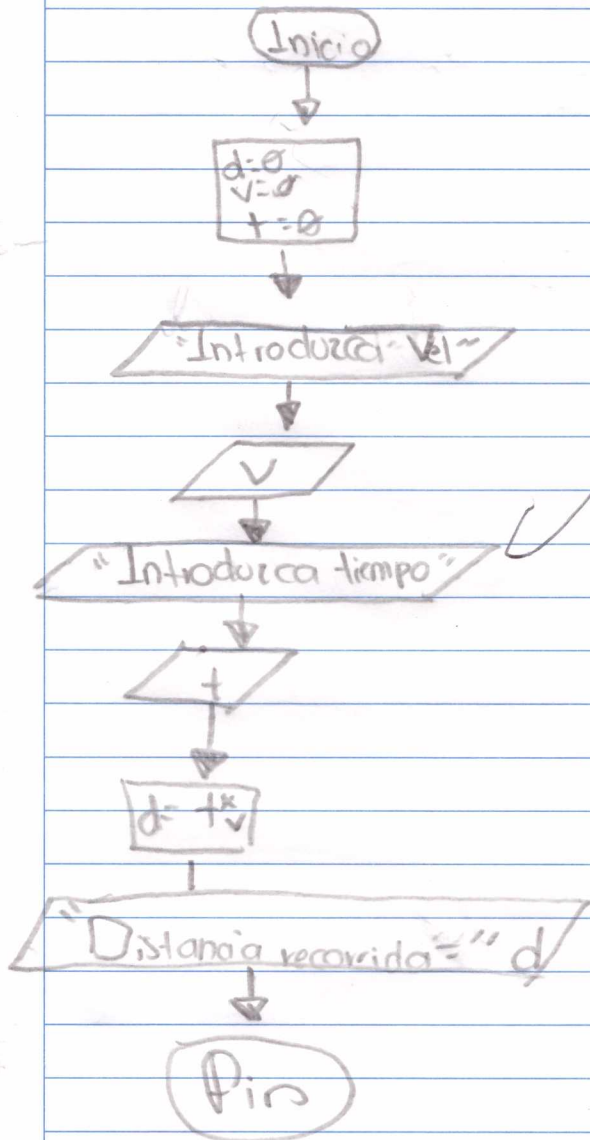 Inicio
d=0
v=0
t=0
"Introduzca Vel"
v
"Introduzca tiempo"
t
d= t*v
"Distancia recorrida=" d
Fin